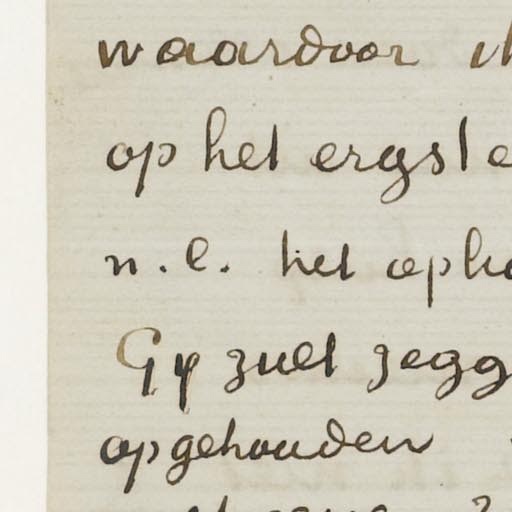 waardoor
op het ergste
n.l. het opho
Gy zult zegg
opgehouden